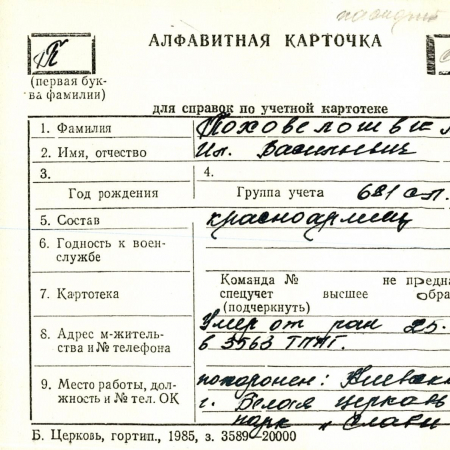 АЛФАВИТНАЯ КАРТОЧКА
К
(первая бук-
ва фамилии)
для справок по учетной картотеке
1. Фамилия
2. Имя, отчество Ил. Васильевич
3. 4.
Год рождения Группа учета 681 сп.
5. Состав красноармеец
6. Годность к воен-
службе
7. Картотека Команда № не предна
спецучет высшее обра
(подчеркнуть)
8. Адрес м-житель-
ства и № телефона Умер от ран 25.
в 3563 ТППГ.
9. Место работы, дол-
жность и № тел. ОК похоронен: Киевск
г. Белая церковь
парк "Слави
Б. Церковь, гортип., 1985, з. 3589—20000